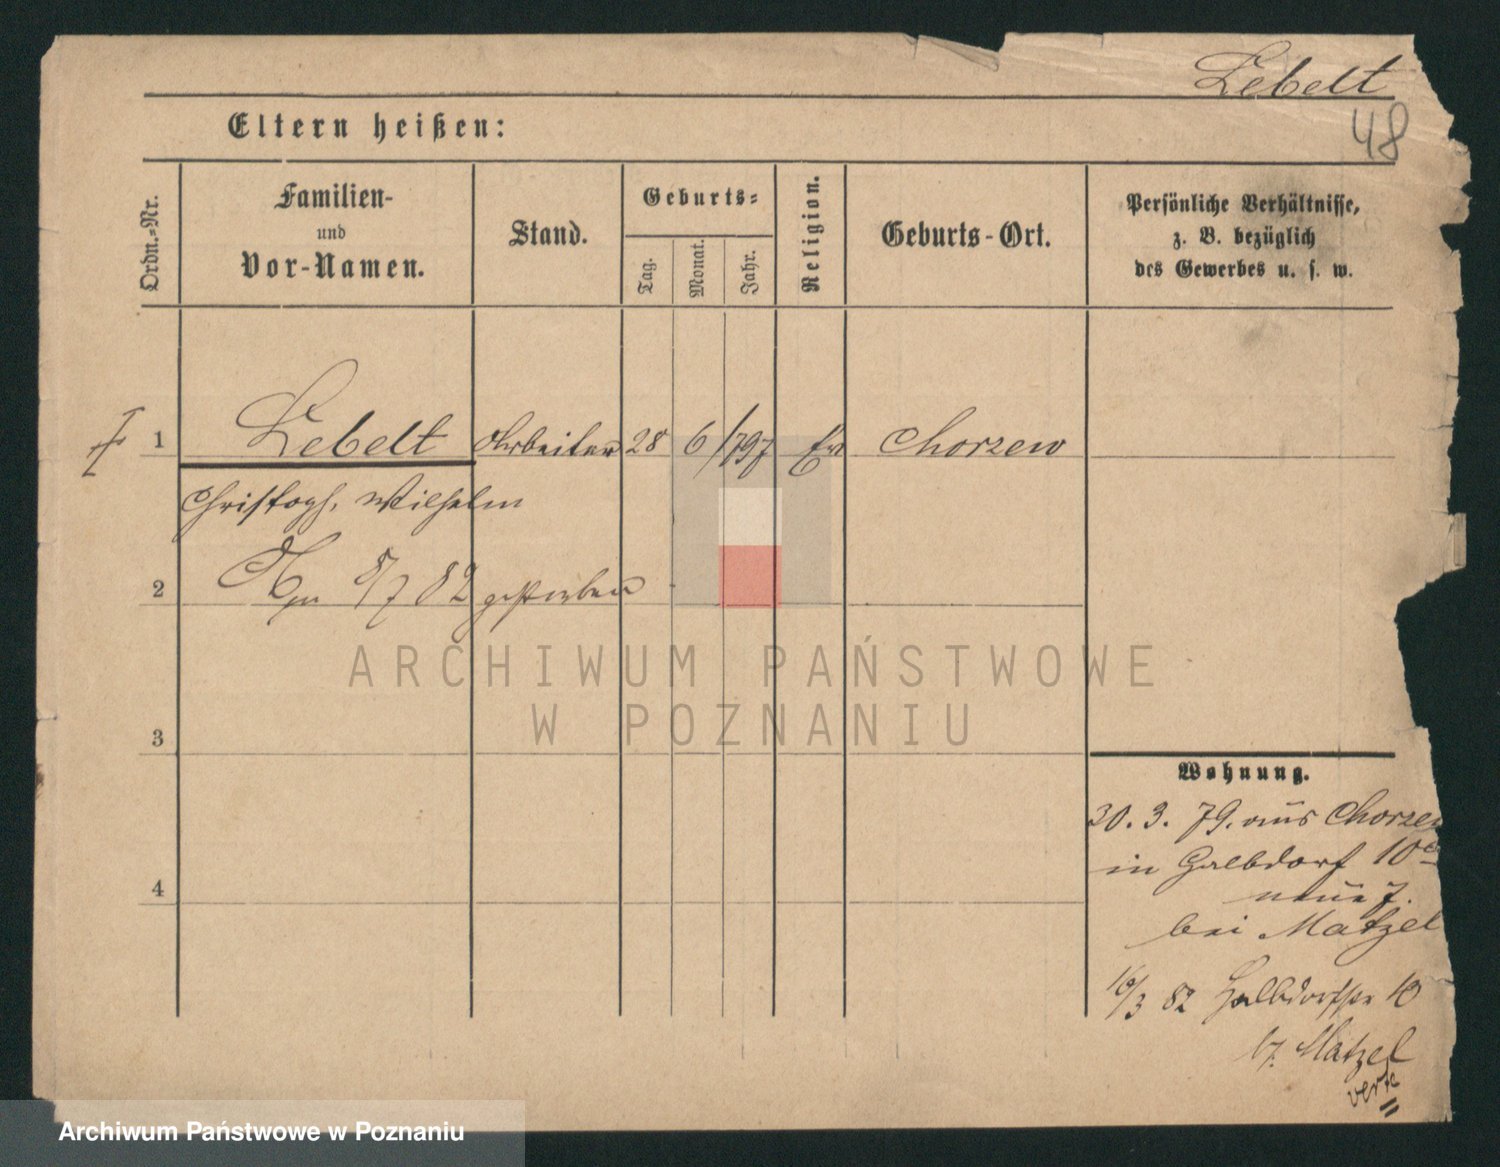 Lebelt
48
Eltern heißen:
Ordn.-Nr.
Familien-
und
Vor-Namen.
Stand.
Geburts-
Tag.
Monat.
Jahr.
Religion.
Geburts-Ort.
Persönliche Verhältnisse,
z. B. bezüglich
des Gewerbes u. s. w.
1 Lebelt Arbeiter 28 6 1797 Ev Chorzew
Christoph, Wilhelm
2 Am 8/7 82 gestorben
ARCHIWUM PAŃSTWOWE
W POZNANIU
3
Wohnung.
30. 3. 79. aus Chorzew
in Halbdorf 10
neue 7.
bei Matzel
4
16/3 82 Halbdorfstr 10
b. Matzel
Archiwum Państwowe w Poznaniu